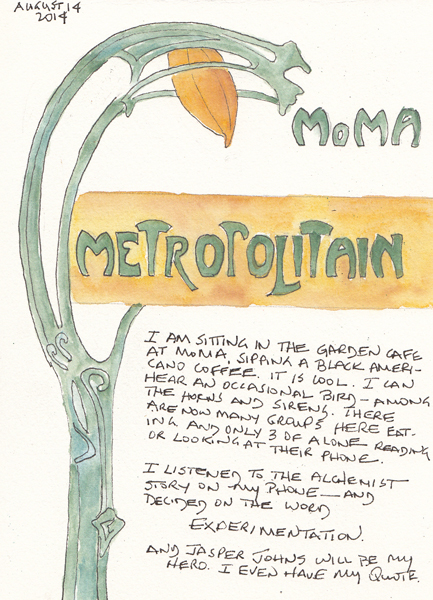 AUGUST 14
2014
MOMA
METROPOLITAIN
I AM SITTING IN THE GARDEN CAFE
AT MOMA, SIPPING A BLACK AMERI-
CANO COFFEE. IT IS COOL. I CAN
HEAR AN OCCASIONAL BIRD - AMONG
THE HORNS AND SIRENS. THERE
ARE NOW MANY GROUPS HERE EAT-
ING AND ONLY 3 OF ALONE READING
OR LOOKING AT THEIR PHONE.
I LISTENED TO THE ALCHEMIST
STORY ON MY PHONE - AND
DECIDED ON THE WORD
EXPERIMENTATION.
AND JASPER JOHNS WILL BE MY
HERO. I EVEN HAVE MY QUOTE.